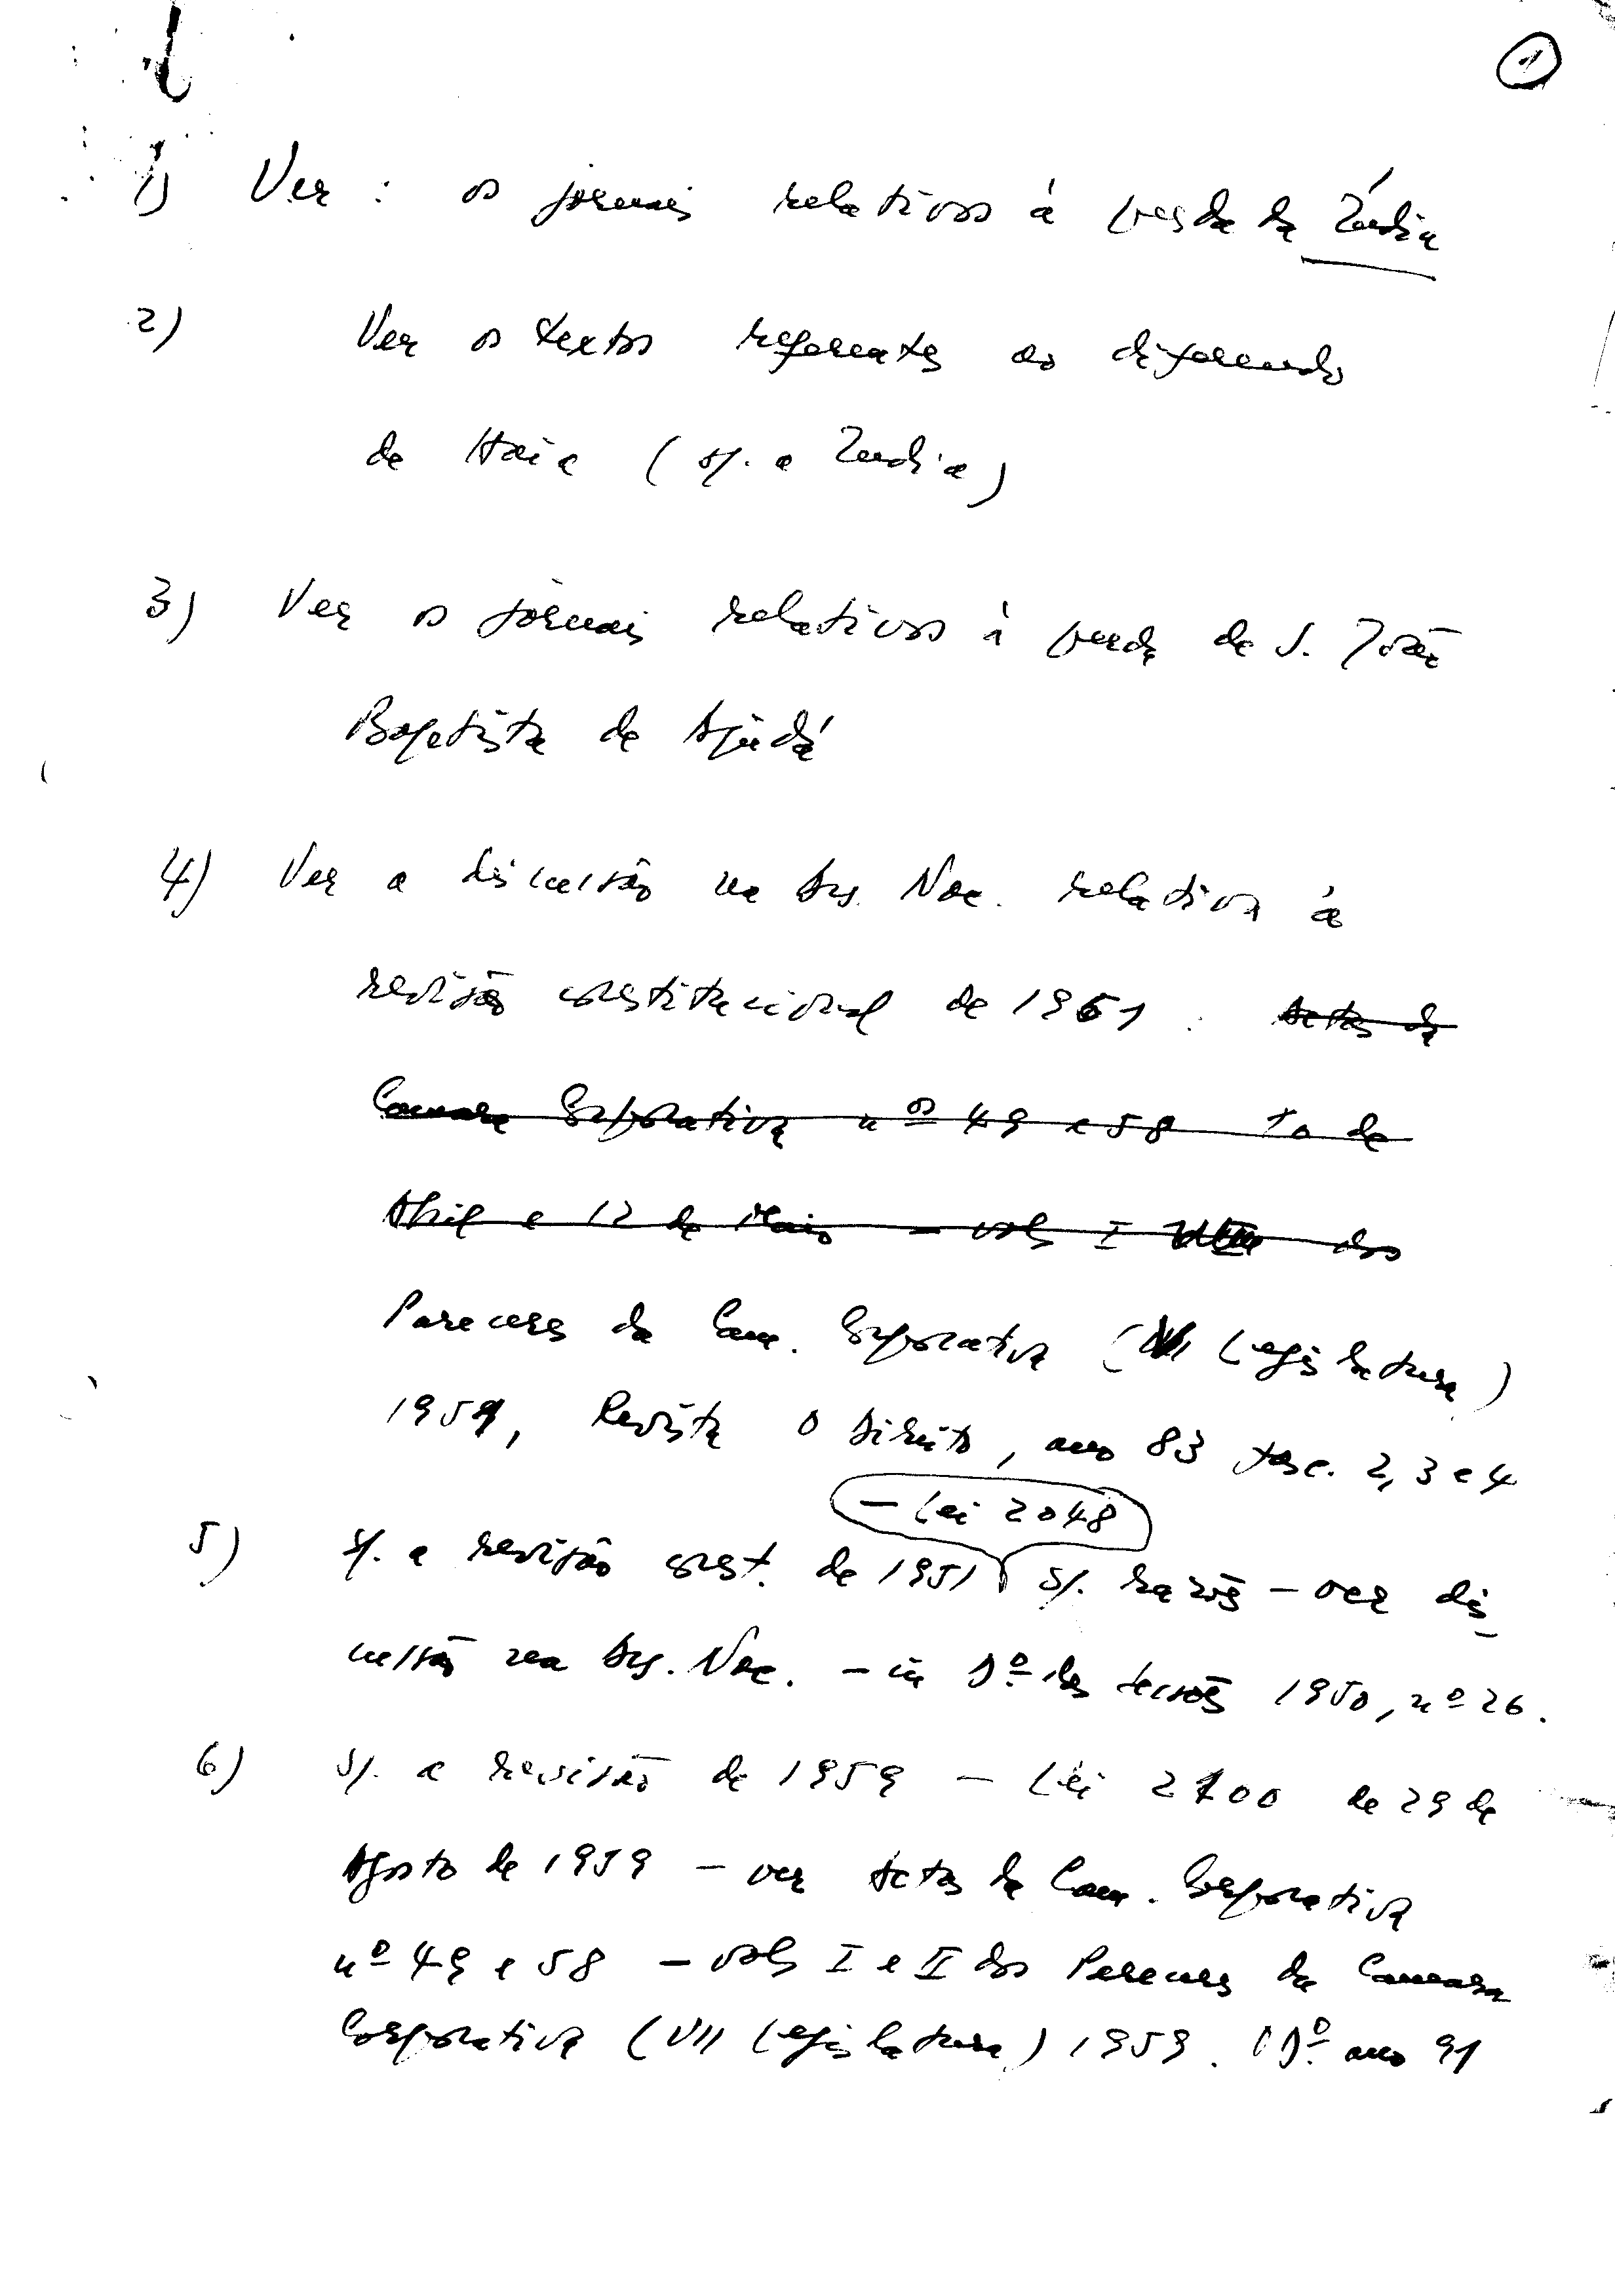 1
1) Ver : os jornais relativos à perda da Índia
2) Ver os textos referentes ao diferendo
de Haia (s/. a India)
3) Ver os jornais relativos à perda de S. João
Baptista de Ajudá
4) Ver a discussão na Ass. Nac. relativa à
revisão constitucional de 1961 : Actas da
Camara Corporativa nos 49 e 58 10 de
Abril e 12 de Maio – vols I dos
Pareceres da Cam. Corporativa ( Legislatura)
1959, Revista O Direito, ano 83 fasc. 2, 3 e 4
– Lei 2048
5) s/. a revisão const. de 1951 s/. razões – ver dis
cussão na Ass. Nac. – in Dº. das sessões 1950, nº 26.
6) s/. a revisão de 1959 – Lei 2100 de 29 de
Agosto de 1959 – ver Actas da Cam. Corporativa
nº 49 e 58 – vols I e II dos Pareceres da Camara
Corporativa (VII Legislatura) 1959. ODº. ano 91